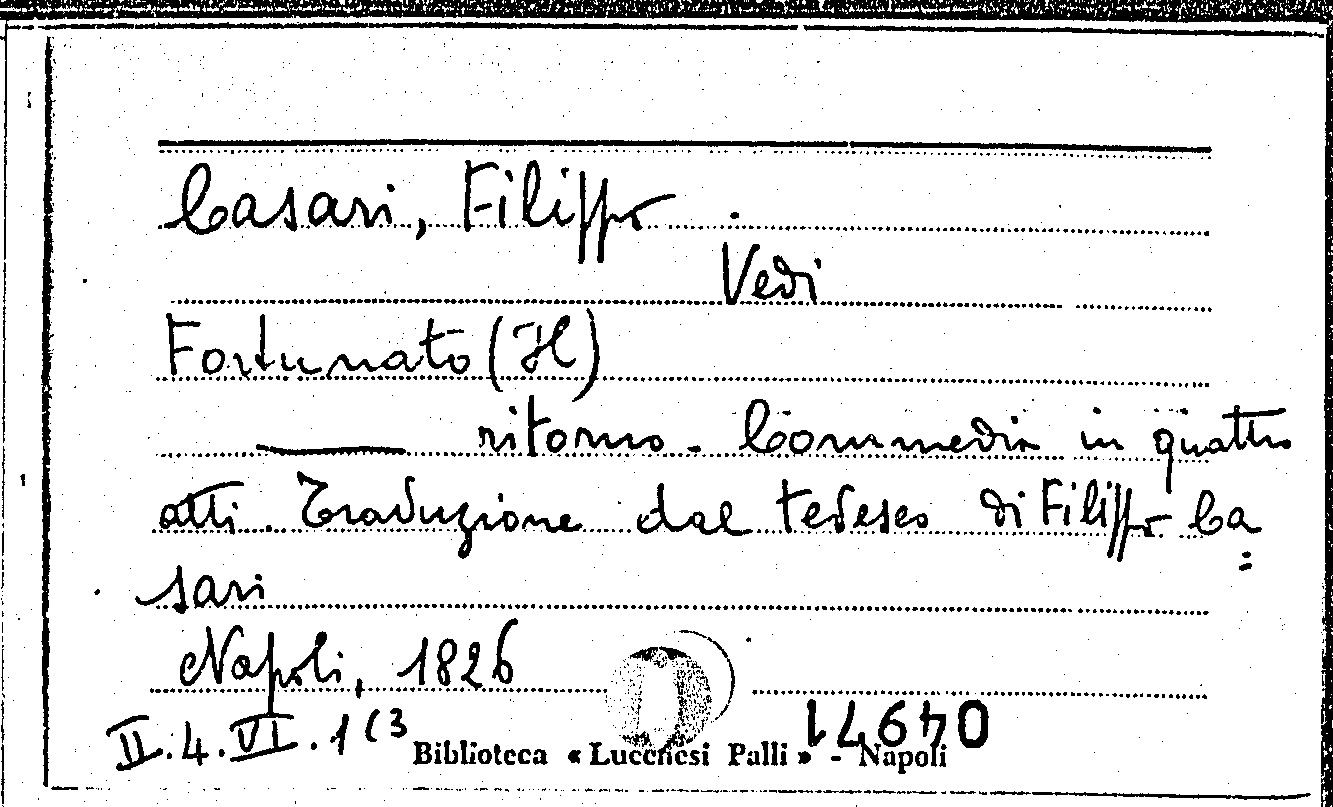 Casari, Filippo
Vedi
Fortunato (Il)
ritorno. Commedia in quattro
atti. Traduzione dal tedesco di Filippo Ca
=
sari
Napoli, 1826
II.4.VI.1(3
Biblioteca « Lucchesi Palli » - Napoli
04971